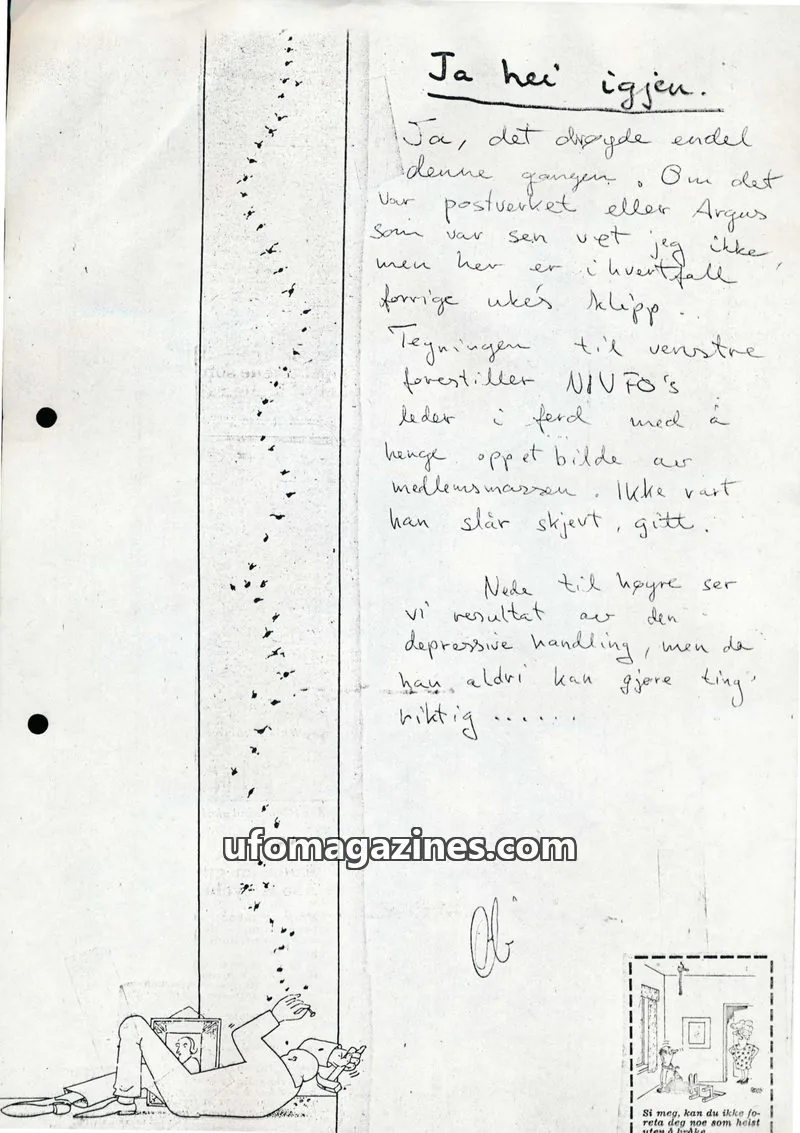 Ja hei igjen.
Ja, det drøyde endel
denne gangen. Om det
var postverket eller Argus
som var sen vet jeg ikke,
men her er i hvertfall
forrige uke's klipp..
Tegningen til venstre
forestiller NIVFO's
leder i ferd med å
henge opp et bilde av
medlemsmassen. Ikke rart
han slår skjevt, gitt.
Nede til høyre ser
vi resultat av den
depressive handling, men da
han aldri kan gjøre ting
riktig ......
ufomagazines.com
Si meg, kan du ikke fo-
reta deg noe som helst
uten å bråke